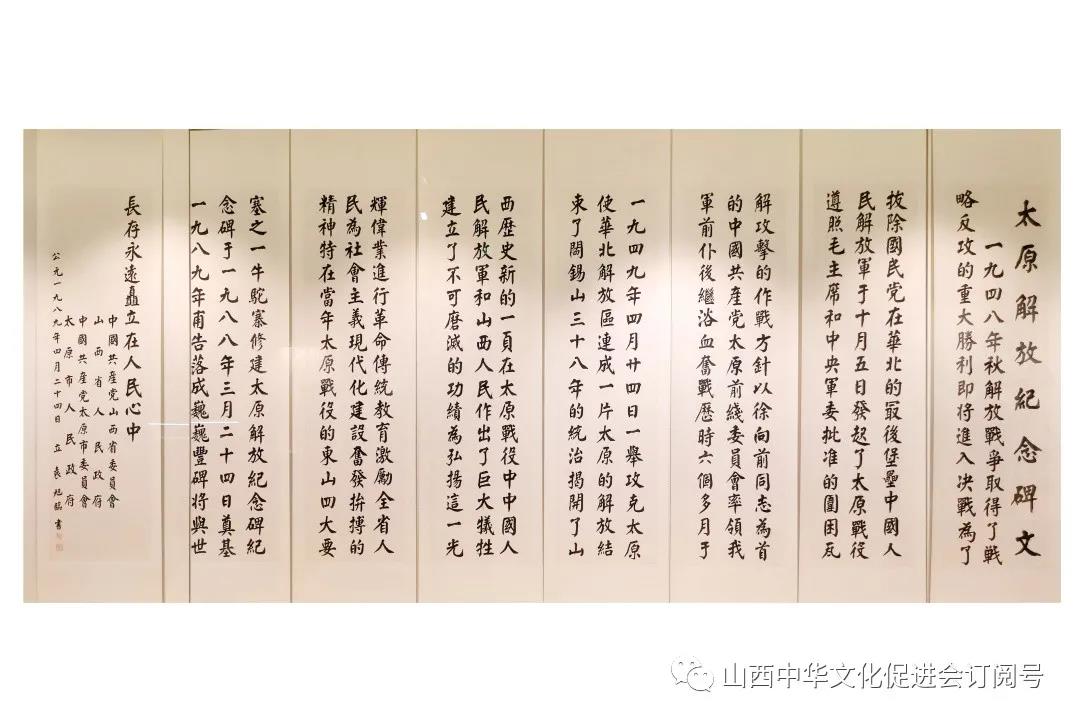 太原解放紀念碑文
一九四八年秋解放戰爭取得了戰
略反攻的重大勝利即將進入决戰為了
拔除國民党在華北的最後堡壘中國人
民解放軍于十月五日發起了太原戰役
遵照毛主席和中央軍委批准的圍困瓦
解攻擊的作戰方針以徐向前同志為首
的中國共産党太原前綫委員會率領我
軍前仆後繼浴血奮戰歷時六個多月于
一九四九年四月廿四日一舉攻克太原
使華北解放區連成一片太原的解放結
束了閻錫山三十八年的統治揭開了山
西歷史新的一頁在太原戰役中中國人
民解放軍和山西人民作出了巨大犠牲
建立了不可磨滅的功績為弘揚這一光
輝偉業進行革命傳統教育激勵全省人
民為社會主義現代化建設奮發拚搏的
精神特在當年太原戰役的東山四大要
塞之一牛駝寨修建太原解放紀念碑紀
念碑于一九八八年三月二十四日奠基
一九八九年甫告落成巍巍豐碑將與世
長存永遠矗立在人民心中
中國共産党山西省委員會
山西省人民政府
中國共産党太原市委員會
太原市人民政府
公元一九八九年四月二十四日 立 袁旭臨 書
山西中华文化促进会订阅号